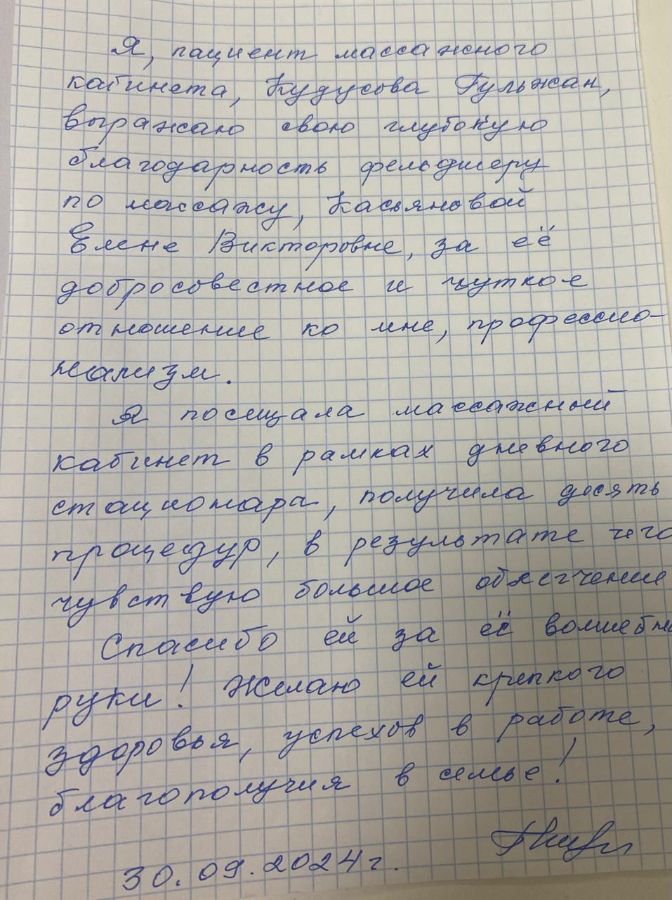 Я, пациент массажного
кабинета, Кудусова Гульжан,
выражаю свою глубокую
благодарность фельдшеру
по массажу, Касьяновой
Елене Викторовне, за её
добросовестное и чуткое
отношение ко мне, профессио-
нализм.
Я посещала массажный
кабинет в рамках дневного
стационара, получила десять
процедур, в результате чего
чувствую большое облегчение
Спасибо ей за её волшебны
руки! Желаю ей крепкого
здоровья, успехов в работе,
благополучия в семье!
30.09.2024г.